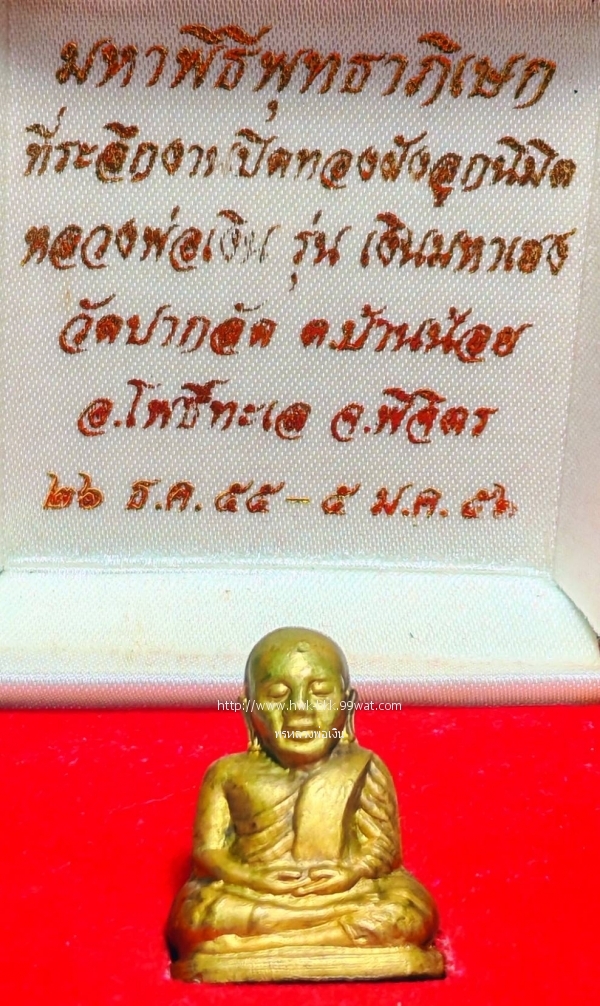 มหาพิธีพุทธาภิเษก
ที่ระลึกงานปิดทองฝังลูกนิมิต
หลวงพ่อเงิน รุ่น เงินมหาเฮง
วัดปากลัด ต.บ้านน้อย
อ.โพธิ์ทะเล จ.พิจิตร
๒๖ ธ.ค. ๕๕ - ๕ ม.ค. ๕๖
พรหลวงพ่อเงิน